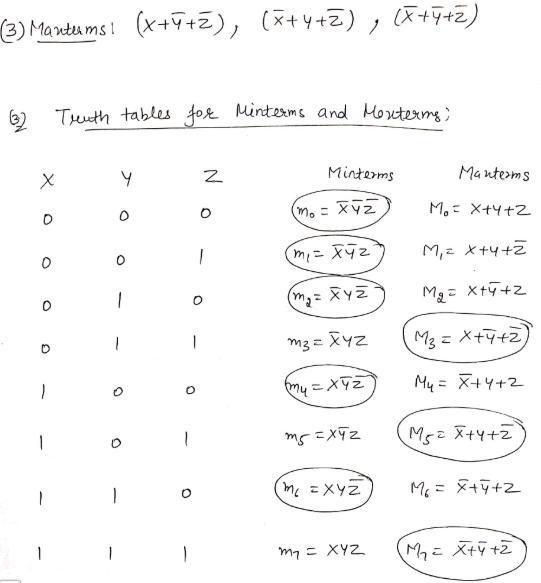 (3) Maxterms: (X+Y̅+Z̅), (X̅+Y+Z̅), (X̅+Y̅+Z̅)
(3) Truth tables for Minterms and Maxterms;
X Y Z Minterms Maxterms
0 0 0 m₀ = X̅Y̅Z̅ M₀ = X+Y+Z
0 0 1 m₁ = X̅Y̅Z M₁ = X+Y+Z̅
0 1 0 m₂ = X̅YZ̅ M₂ = X+Y̅+Z
0 1 1 m₃ = X̅YZ M₃ = X+Y̅+Z̅
1 0 0 m₄ = XY̅Z̅ M₄ = X̅+Y+Z
1 0 1 m₅ = XY̅Z M₅ = X̅+Y+Z̅
1 1 0 m₆ = XYZ̅ M₆ = X̅+Y̅+Z
1 1 1 m₇ = XYZ M₇ = X̅+Y̅+Z̅